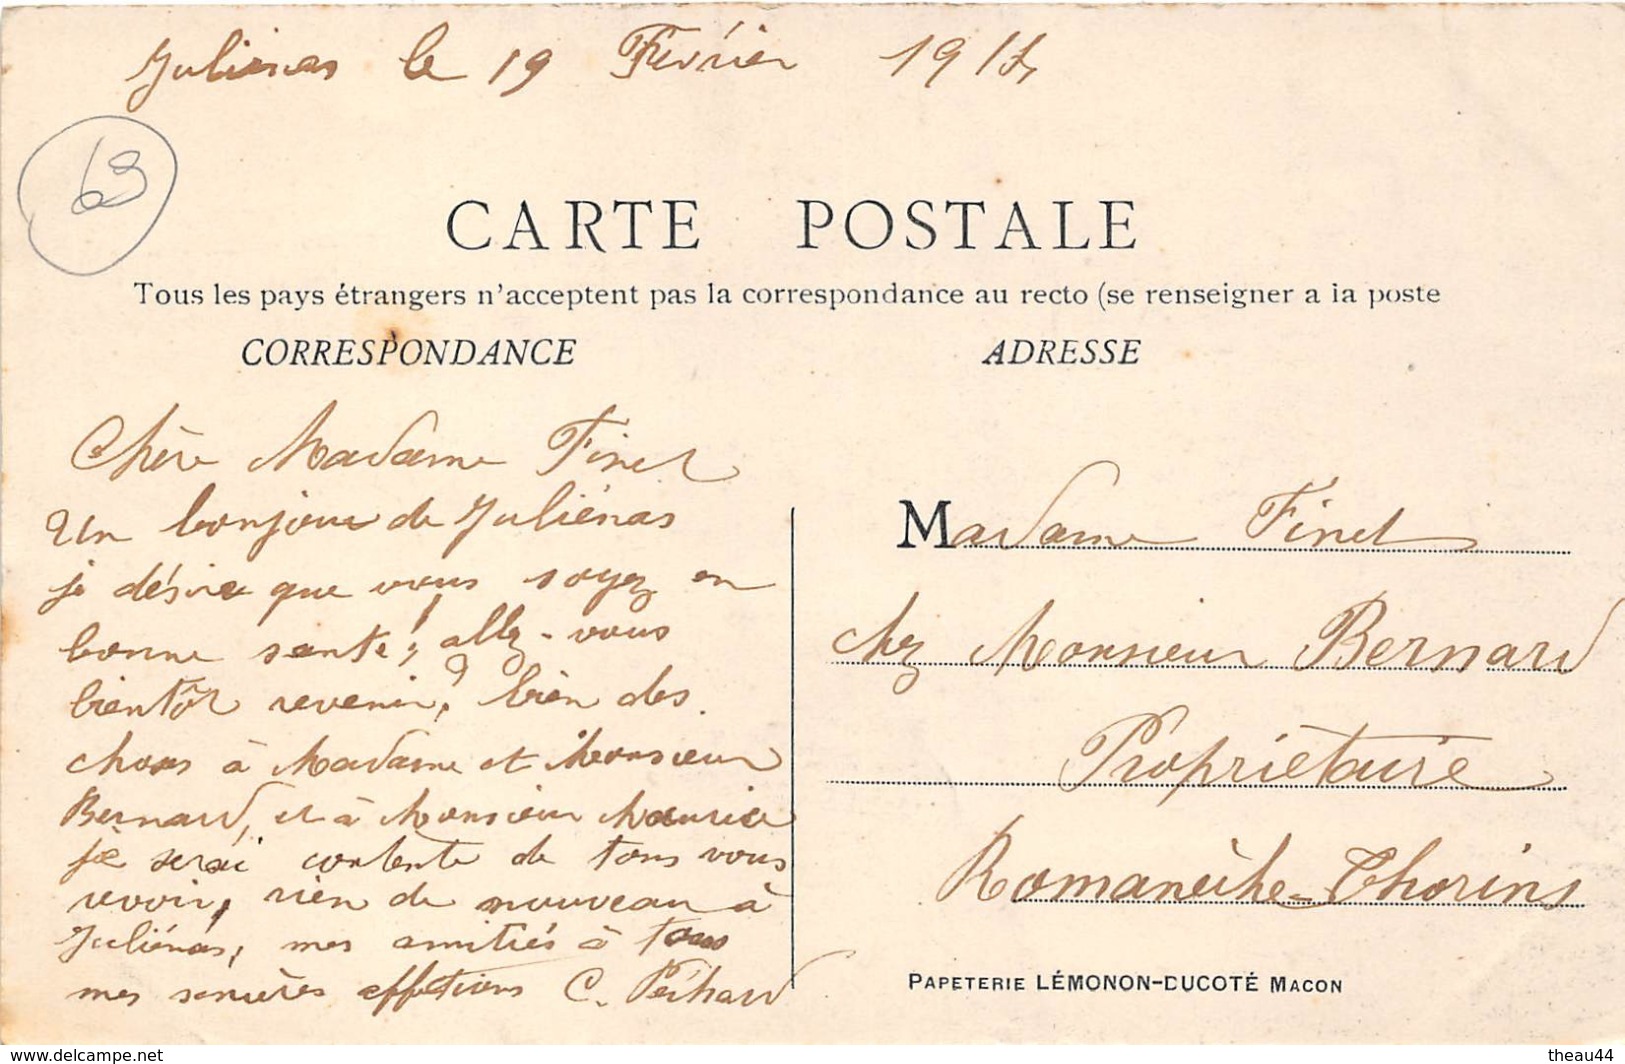 Juliénas le 19 Février 191
69
CARTE POSTALE
Tous les pays étrangers n'acceptent pas la correspondance au recto (se renseigner a la poste
CORRESPONDANCE
ADRESSE
Chère Madame Finet
Un bonjour de Juliénas
je désire que vous soyez en
bonne santé! allez-vous
bientôt revenir? bien des
choses à Madame et Monsieur
Bernard, et à Monsieur Maurice
je serai contente de tous vous
revoir, rien de nouveau à
Juliénas, mes amitiés à tous
mes sincères affections C.
Madame Finet
chez Monsieur Bernard
Propriétaire
Romanèche-Thorins
PAPETERIE LÉMONON-DUCOTÉ MACON
www.delcampe.net
theau44